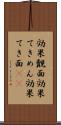 効果覿面効果
てきめん効果
てき面